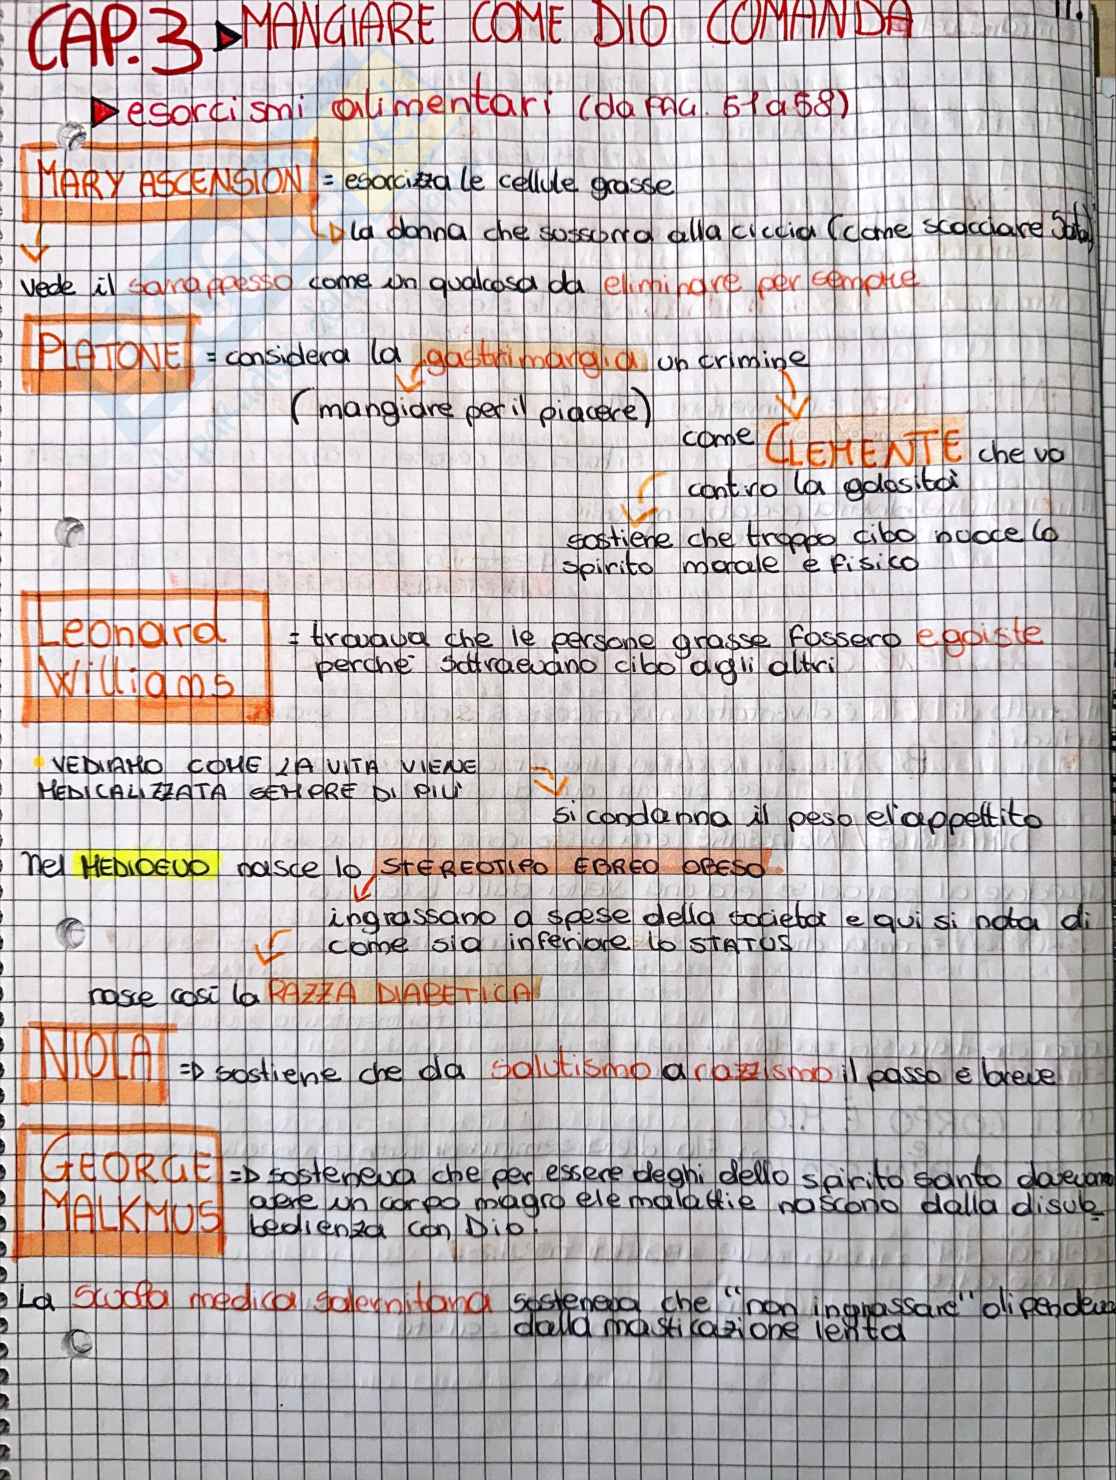 CAP.3 ▶ MANGIARE COME DIO COMANDA
11.
▶ esorcismi alimentari (da pag. 51 a 58)
MARY ASCENSION = esorcizza le cellule grasse
↳ la donna che sussurra alla ciccia (come scacciare
vede il sovrappeso come un qualcosa da eliminare per sempre
PLATONE = considera la gastrimargia un crimine
(mangiare per il piacere)
come CLEMENTE che va
contro la golosità
sostiene che troppo cibo nuoce lo
spirito morale e fisico
Leonard = trovava che le persone grasse fossero egoiste
Williams perchè sottraevano cibo agli altri
• VEDIAMO COME LA VITA VIENE
MEDICALIZZATA SEMPRE DI PIU'
si condanna il peso e l'appettito
nel MEDIOEVO nasce lo STEREOTIPO EBREO OBESO
ingrassano a spese della società e qui si nota di
come sia inferiore lo STATUS
nasce così la RAZZA DIABETICA
NIOLA ⇒ sostiene che da salutismo a razzismo il passo è breve
GEORGE ⇒ sosteneva che per essere deghi dello spirito santo dovevano
MALKMUS avere un corpo magro e le malattie nascono dalla disub
bedienza con Dio.
La scuola medica salernitana sosteneva che "non ingrassare" dipendeva
dalla masticazione lenta